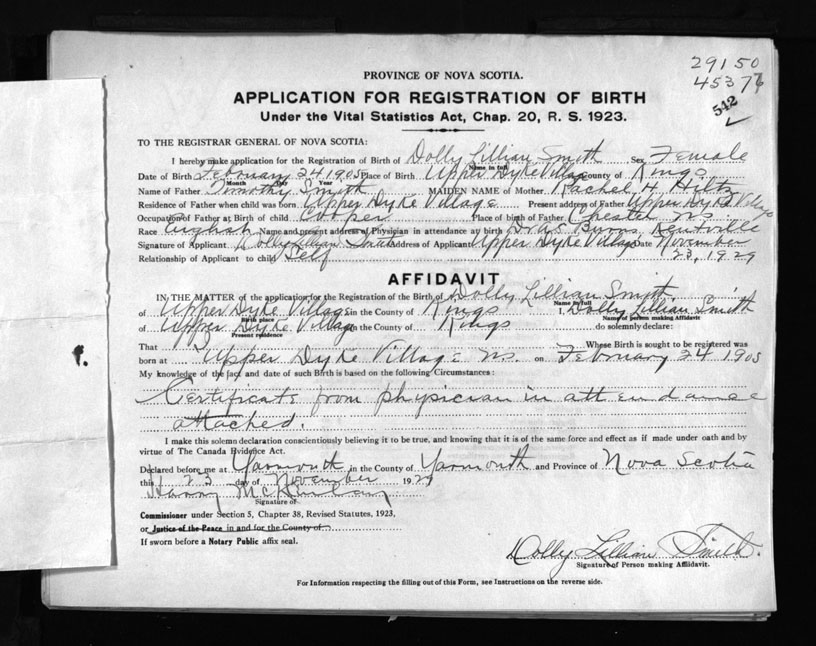 29150
45376
542
PROVINCE OF NOVA SCOTIA.
APPLICATION FOR REGISTRATION OF BIRTH
Under the Vital Statistics Act, Chap. 20, R. S. 1923.
TO THE REGISTRAR GENERAL OF NOVA SCOTIA:
I hereby make application for the Registration of Birth of Dolly Lillian Smith Sex Female
Name in full
Date of Birth February 24 1905 Place of Birth Upper Dyke Village County of Kings
Month Day Year
Name of Father Timothy Smith MAIDEN NAME of Mother Rachel H. Hiltz
Residence of Father when child was born Upper Dyke Village Present address of Father Upper Dyke Village
Occupation of Father at Birth of child Cooper Place of birth of Father Chester N.S.
Race English Name and present address of Physician in attendance at birth Kentville
Signature of Applicant Dolly Lillian Smith Address of Applicant Upper Dyke Village Date November
Relationship of Applicant to child Self 23, 1929
AFFIDAVIT
IN THE MATTER of the application for the Registration of the Birth of Dolly Lillian Smith
Name in full
of Upper Dyke Village in the County of Kings I, Dolly Lillian Smith
Birth place Name of person making Affidavit
of Upper Dyke Village in the County of Kings do solemnly declare:
Present residence
That Whose Birth is sought to be registered was
born at Upper Dyke Village N.S. on February 24 1905
My knowledge of the fact and date of such Birth is based on the following Circumstances:
Certificate from physician in attendance
attached.
I make this solemn declaration conscientiously believing it to be true, and knowing that it is of the same force and effect as if made under oath and by
virtue of The Canada Evidence Act.
Declared before me at Yarmouth in the County of Yarmouth and Province of Nova Scotia
this 23 day of November 1929
Harry McKinlay
Signature of
Commissioner under Section 5, Chapter 38, Revised Statutes, 1923,
or Justice of the Peace in and for the County of
If sworn before a Notary Public affix seal.
Dolly Lillian Smith.
Signature of Person making Affidavit.
For Information respecting the filling out of this Form, see Instructions on the reverse side.